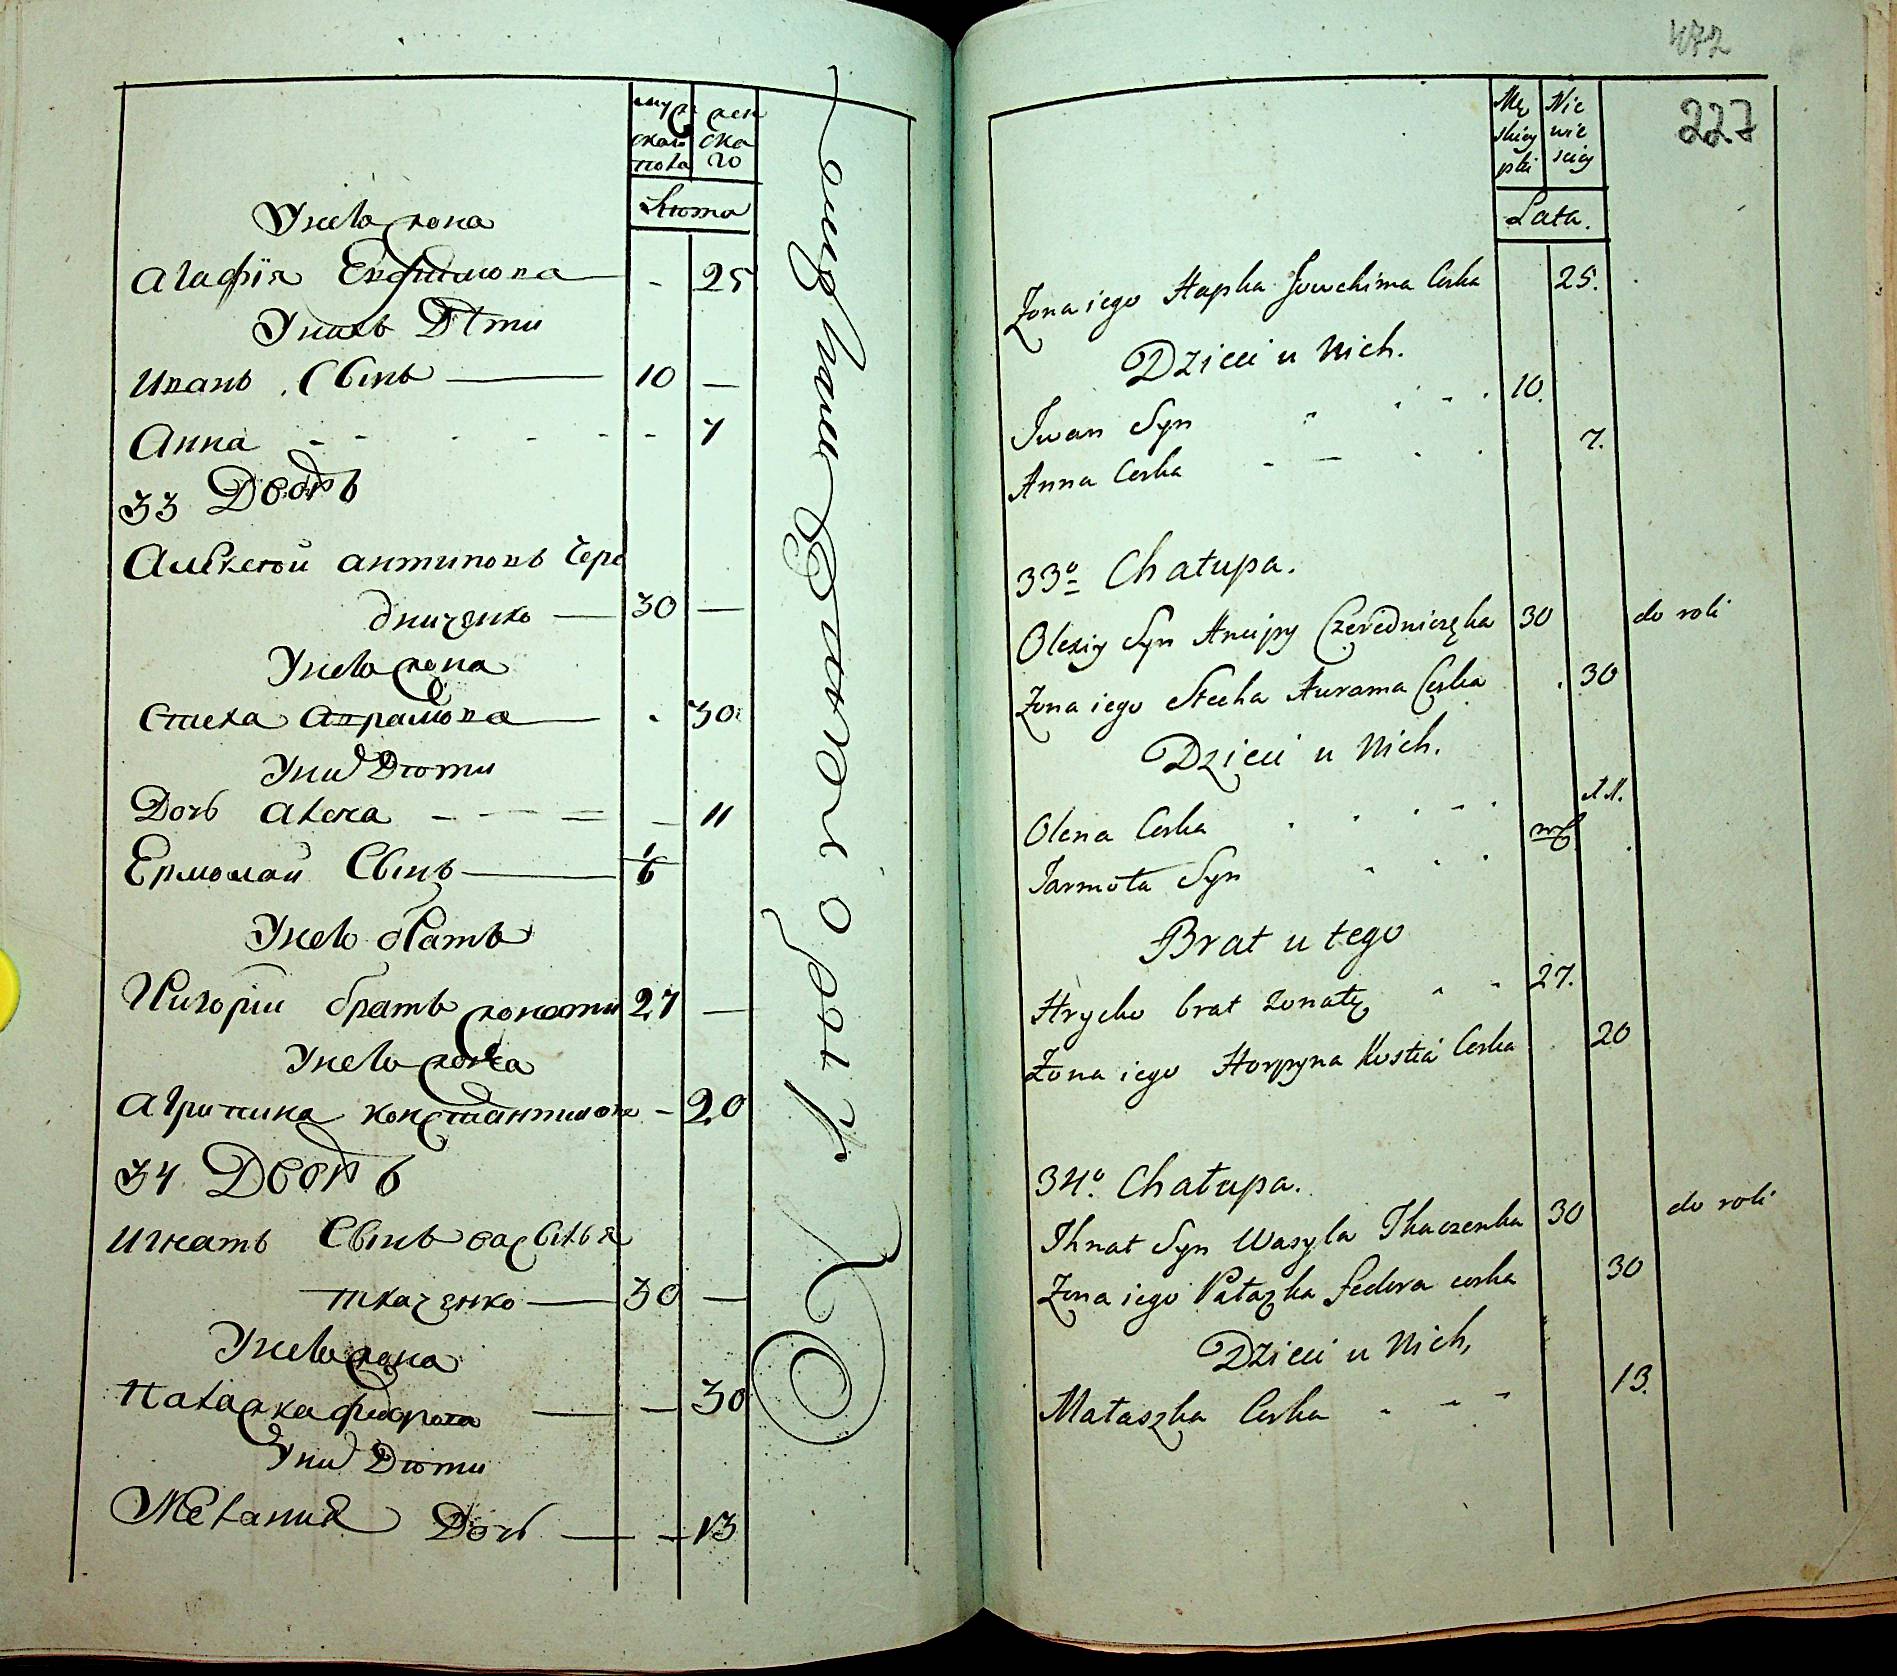 муж
скаго
пола
жен
ска
го
Лѣта
У него жена
Агафія Евфимова — - 25
У нихъ Дѣти
Иванъ Сынъ — 10 —
Анна - - - - 7
33 Дворъ
Алексѣй Антиповъ Чере
дниченко — 30 —
У него жена
Стеха Аврамова — . 30
У нихъ Дѣти
Дочь Алена - - — 11
Ермолай Сынъ — 1/6
У него братъ
Григорій братъ женатый 27 —
У него жена
Агрипина Константинова - 20
34 Дворъ
Игнатъ Сынъ Василья
Ткаченко — 30 —
У него жена
Палажка Федорова — — 30
У нихъ Дѣти
Мелания Дочь — - 13
472
227
Mę
skiey
płci
Nie
wie
sciey
Lata.
Zona iego Hapka Jowchima Corka 25.
Dzieci u Nich.
Iwan Syn 10.
Anna Corka 7.
33o Chałupa.
Olexiy Syn Ancipy Czeredniczęka 30 do roli
Zona iego Stecha Awrama Corka 30
Dzieci u Nich.
Olena Corka 11.
Jarmoła Syn
Brat u tego
Hrycko brat zonaty 27.
Zona iego Horpyna Kostia Corka 20
34o. Chałupa.
Ihnat Syn Wasyla Tkaczenka 30 do roli
Zona iego Pałazka Fedora corka 30
Dzieci u Nich,
Małaszka Corka 13.